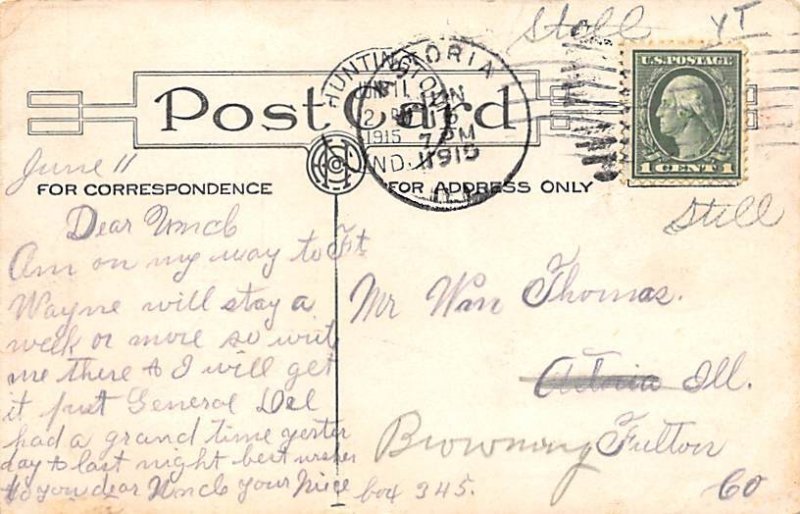 Still
Post Card
HUNTINGTON
1915
IND.
ASTORIA
JUN
7 PM
1915
U.S. POSTAGE
1 CENT 1
Still
June 11
FOR CORRESPONDENCE
FOR ADDRESS ONLY
Dear Uncle
Am on my way to Ft
Wayne will stay a
week or more so write
me there & I will get
it just General Del
had a grand time yester
day & last night best wishes
to you dear Uncle your Niece
Mr Wm Thomas.
Astoria Ill.
Browning Fulton
box 345. Co